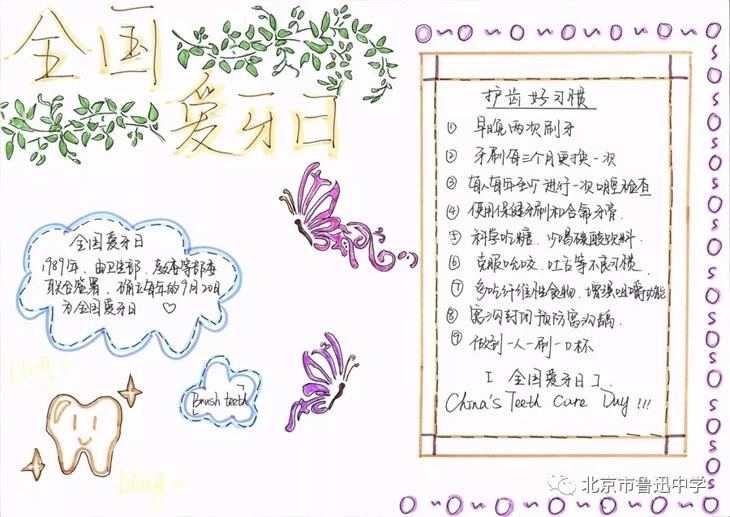 全国
爱牙日
全国爱牙日
1989年，由卫生部、教委等部委
联合签署，确立每年的9月20日
为全国爱牙日
Bling
Brush teeth
Bling
护齿好习惯
① 早晚两次刷牙
② 牙刷每三个月更换一次
③ 每人每年至少进行一次口腔检查
④ 使用保健牙刷和含氟牙膏.
⑤ 科学吃糖，少喝碳酸饮料
⑥ 克服吮咬、吐舌等不良习惯
⑦ 多吃纤维性食物，增强咀嚼功能
⑧ 窝沟封闭预防窝沟龋.
⑨ 做到一人一刷一口杯
全国爱牙日
China's Teeth Care Day!!!
北京市鲁迅中学